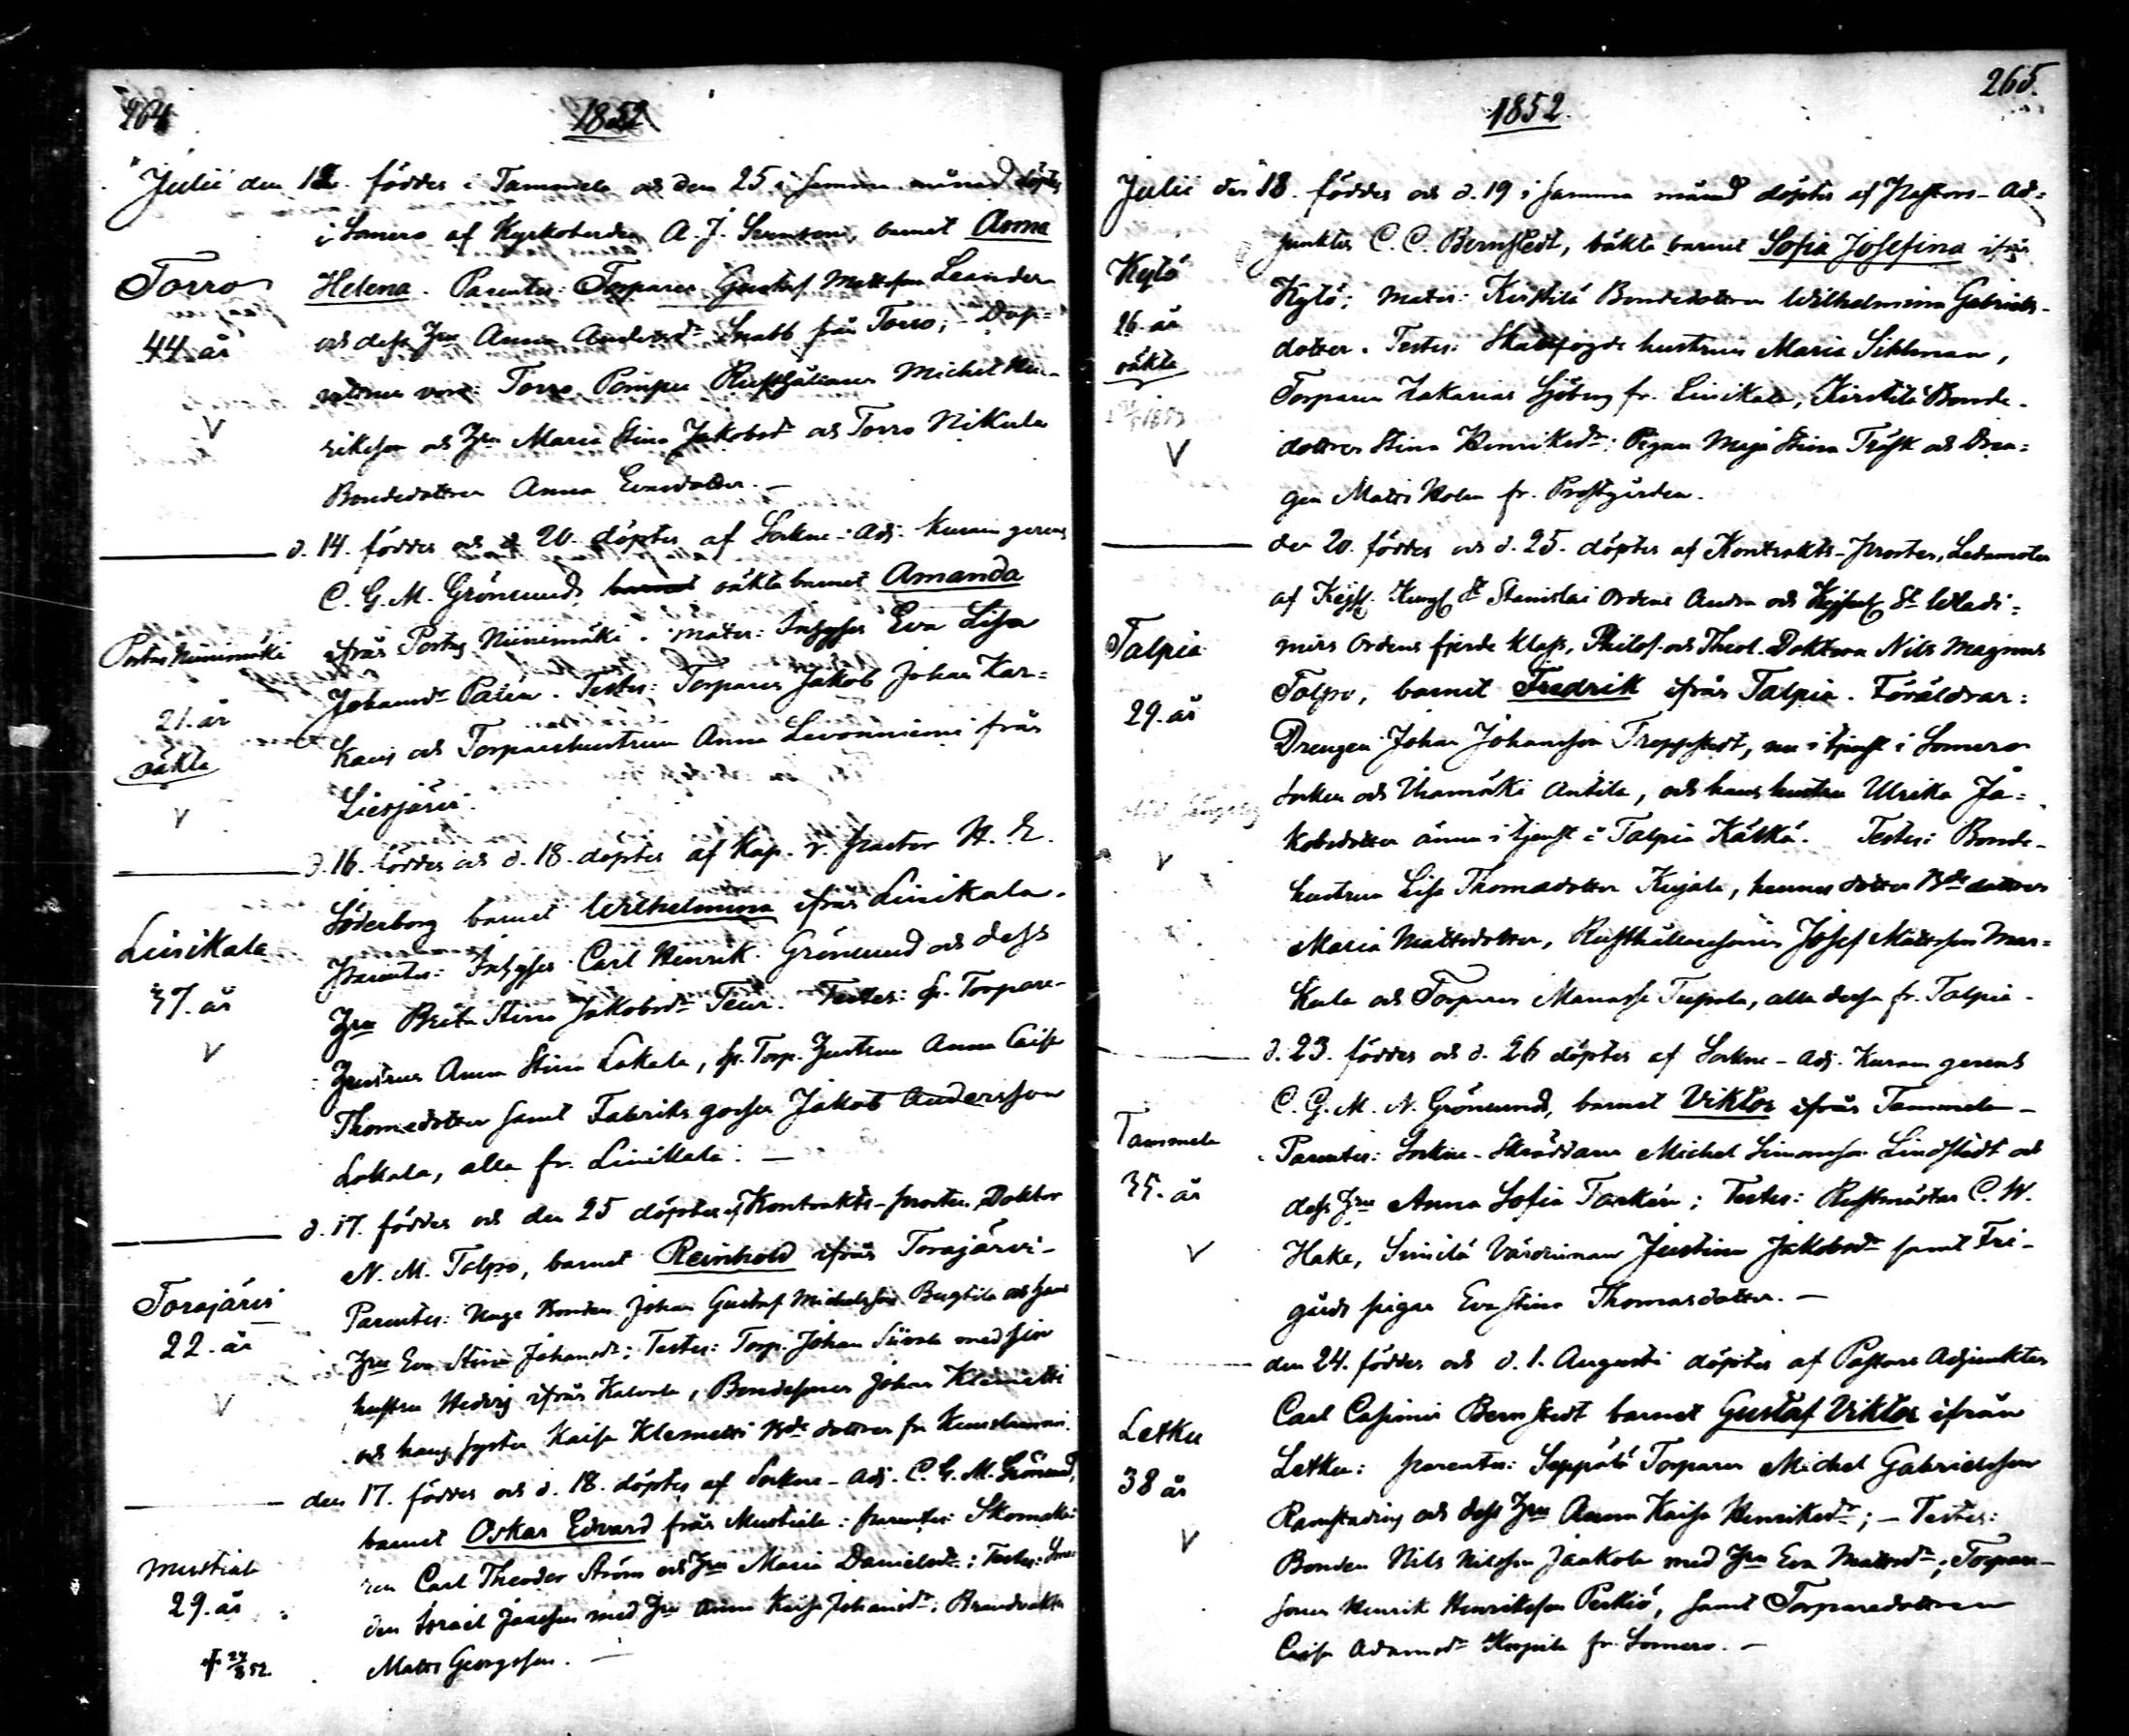 264
1852
Julii den 12. föddes i Tammela och den 25 i samma månad döptes
i Somero af Kyrkoherden A. J. Svenson, barnet Anna
Torro
Helena. Parentes: Torparen Gustaf Mattsson Leander
44 år
och dess Hru Anna Andersdr Snabb från Torro; - Dop-
vittnen voro: Torro Pompu Rusthållaren Michel Hen-
V
riksson och Hru Maria Stina Jakobsdr och Torro Nikula
Bondedottren Anna Evasdotter. -
d. 14. föddes och d 20. döptes af Sockne-Adj. Curam gerens
C. G. M. Grönlund, oäkta barnet Amanda
Portas Niinimäki
ifrån Portas Niinimäki. mater: Inhyses Eva Lisa
21. år
Johansdr Palen. Testes: Torparen Jakob Johan Kar-
oäkta
kaus och Torparehustrun Anna Levonniemi från
V
Liesjärvi.
d. 16. föddes och d. 18. döptes af Kap. v. pastor H. E.
Söderborg barnet Wilhelmina ifrån Liesikala.
Liusikala
parentes: Inhyses Carl Henrik Grönlund och dess
37. år
Hru Brita Stina Jakobsdr Teur. Testes: fr. Torpare-
V
Hustrun Anna Stina Lokala, fr. Torp. Hustrun Anna Caisa
Thomedotter samt Fabriks gossen Jakob Andersson
Lokala, alla fr. Liusikala. -
d. 17. föddes och den 25 döptes af Kontrakts-prosten Doktor
N. M. Tolpo, barnet Reinhold ifrån Torajärvi -
Torajärvi
Parentes: Unge Bonden Johan Gustaf Michelsson Bugtila och hans
22. år
Hru Eva Stina Johansdr; Testes: Torp. Johan Siivola med sin
V
hustru Hedvig ifrån Kalvola, Bondesonen Johan Klemetti
och hans syster Kaisa Klemetti Bde dottren fr
den 17. föddes och d. 18. döptes af Sockne-Adj. C. G. M. Grönlund,
barnet Oskar Edvard från Mustiala: parentes: Skomaka-
Mustiala
ren Carl Theodor Ström och Hru Maria Danielsdr: Testes: Sme-
29. år
den Israel Jonesson med Hru Anna Kaisa Johansdr; Brandvakten
† 24/8 52.
Matts Georgsson. -
265.
1852.
Julii den 18. föddes och d. 19 i samma månad döptes af Pastors-Ad-
junkten C. C. Bernstedt, oäkta barnet Sofia Josefina ifrån
Kytö
Kytö; mater: Kirstilä Bondedottren Wilhelmina Gabriels-
26. år
dotter. Testes: Skattfogde hustrun Maria Sihlman,
oäkta
Torparen Zakarias Sjöberg fr. Liusikala, Kirstilä Bonde-
V
dottren Stina Henriksdr; Pigan Maja Stina Träsk och Drän-
gen Matts Holm fr. Prostgården.
den 20. föddes och d. 25. döptes af Kontrakts-prosten, Ledamoten
af Kejs. Kungl St Stanislai Ordens Andra och Kejserl St Wladi-
Talpia
mirs Ordens fjerde Klass, Philos. och Theol. Doktorn Nils Magnus
29. år
Tolpo, barnet Fredrik ifrån Talpia. Föräldrar:
Drengen Johan Johansson Treppstedt, nu i tjenst i Somero
Socken och Antila, och hans hustru Ulrika Ja-
V
kobsdotter ännu i tjenst i Talpia Kätkä. Testes: Bonde-
hustrun Lisa Thomasdotter Kujala, hennes dotter Bde dottren
Maria Mattsdotter, Rusthållaresonen Josef Mattsson Mar-
kula och Torparen Manasse Tupola, alla dessa fr. Talpia.
d. 23. föddes och d. 26 döptes af Sockne-Adj. Curam gerens
C. G. M. N. Grönlund, barnet Viktor ifrån Tammela -
Tammela
Parentes: Sockne-Skräddaren Michel Simonsson Lindstedt och
35. år
dess Hru Anna Sofia Tackén; Testes: Rustmästar C. W.
V
Hake, Simila Värdinnan Justina Jakobsdr samt Fri-
gårds pigan Eva Stina Thomasdotter. -
den 24. föddes och d. 1. Augusti döptes af Pastors Adjunkten
Carl Casimir Bernstedt barnet Gustaf Viktor ifrån
Letku
Letku: parentes: Seppälä Torparen Michel Gabrielsson
38 år
Ramstading och dess Hru Anna Kaisa Henriksdr; - Testes:
V
Bonden Nils Nilsson Jaakola med Hru Eva Mattsdr; Torpare-
sonen Henrik Henriksson Perkiö, samt Torparedottren
Caisa Adamsdr fr. Somero. -